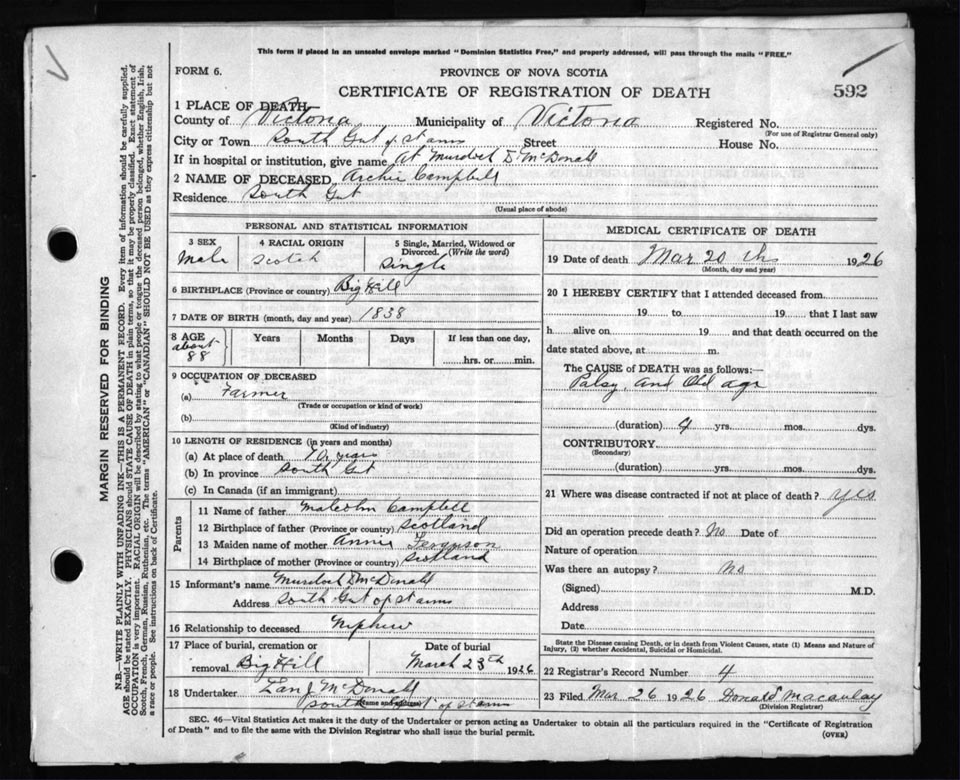 This form if placed in an unsealed envelope marked "Dominion Statistics Free," and properly addressed, will pass through the mails "FREE."
FORM 6.
PROVINCE OF NOVA SCOTIA
CERTIFICATE OF REGISTRATION OF DEATH
592
1 PLACE OF DEATH
County of Victoria Municipality of Victoria Registered No.
(For use of Registrar General only)
City or Town South Gut of St anns Street House No.
If in hospital or institution, give name At Murdock D McDonald
2 NAME OF DECEASED Archie Campbell
Residence South Gut
(Usual place of abode)
PERSONAL AND STATISTICAL INFORMATION
3 SEX
Male
4 RACIAL ORIGIN
Scotch
5 Single, Married, Widowed or Divorced. (Write the word)
Single
6 BIRTHPLACE (Province or country) Big Hill
7 DATE OF BIRTH (month, day and year) 1838
8 AGE
about
88
Years Months Days If less than one day,
hrs. or min.
9 OCCUPATION OF DECEASED
(a) Farmer
(Trade or occupation or kind of work)
(b)
(Kind of industry)
10 LENGTH OF RESIDENCE (in years and months)
(a) At place of death 70 years
(b) In province South Gut
(c) In Canada (if an immigrant)
Parents
11 Name of father Malcolm Campbell
12 Birthplace of father (Province or country) Scotland
13 Maiden name of mother Annie Ferguson
14 Birthplace of mother (Province or country) Scotland
15 Informant's name Murdock D McDonald
Address South Gut of St anns
16 Relationship to deceased Nephew
17 Place of burial, cremation or removal Big Hill
Date of burial
March 23th 1926
18 Undertaker McDonald
South Gut of St anns
(Name and address)
MEDICAL CERTIFICATE OF DEATH
19 Date of death Mar 20 th 1926
(Month, day and year)
20 I HEREBY CERTIFY that I attended deceased from
19 to 19 that I last saw
h alive on 19 and that death occurred on the
date stated above, at m.
The CAUSE of DEATH was as follows:—
Palsy and Old age
(duration) 4 yrs. mos. dys.
CONTRIBUTORY
(Secondary)
(duration) yrs. mos. dys.
21 Where was disease contracted if not at place of death? yes
Did an operation precede death? No Date of
Nature of operation
Was there an autopsy? no
(Signed) M.D.
Address
Date
State the Disease causing Death, or in death from Violent Causes, state (1) Means and Nature of Injury, (2) whether Accidental, Suicidal or Homicidal.
22 Registrar's Record Number 4
23 Filed Mar 26 1926 Donald Macaulay
(Division Registrar)
SEC. 46—Vital Statistics Act makes it the duty of the Undertaker or person acting as Undertaker to obtain all the particulars required in the "Certificate of Registration
of Death" and to file the same with the Division Registrar who shall issue the burial permit.
(OVER)
MARGIN RESERVED FOR BINDING
N.B.—WRITE PLAINLY WITH UNFADING INK—THIS IS A PERMANENT RECORD. Every item of information should be carefully supplied.
AGE should be stated EXACTLY. PHYSICIANS should STATE CAUSE OF DEATH in plain terms, so that it may be properly classified. Exact statement of
OCCUPATION is very important. RACIAL ORIGIN will be described by stating to what people or tongue the deceased person belonged, whether English, Irish,
Scotch, French, German, Russian, Ruthenian, etc. The terms "AMERICAN" or "CANADIAN" SHOULD NOT BE USED as they express citizenship but not
a race or people. See instructions on back of Certificate.